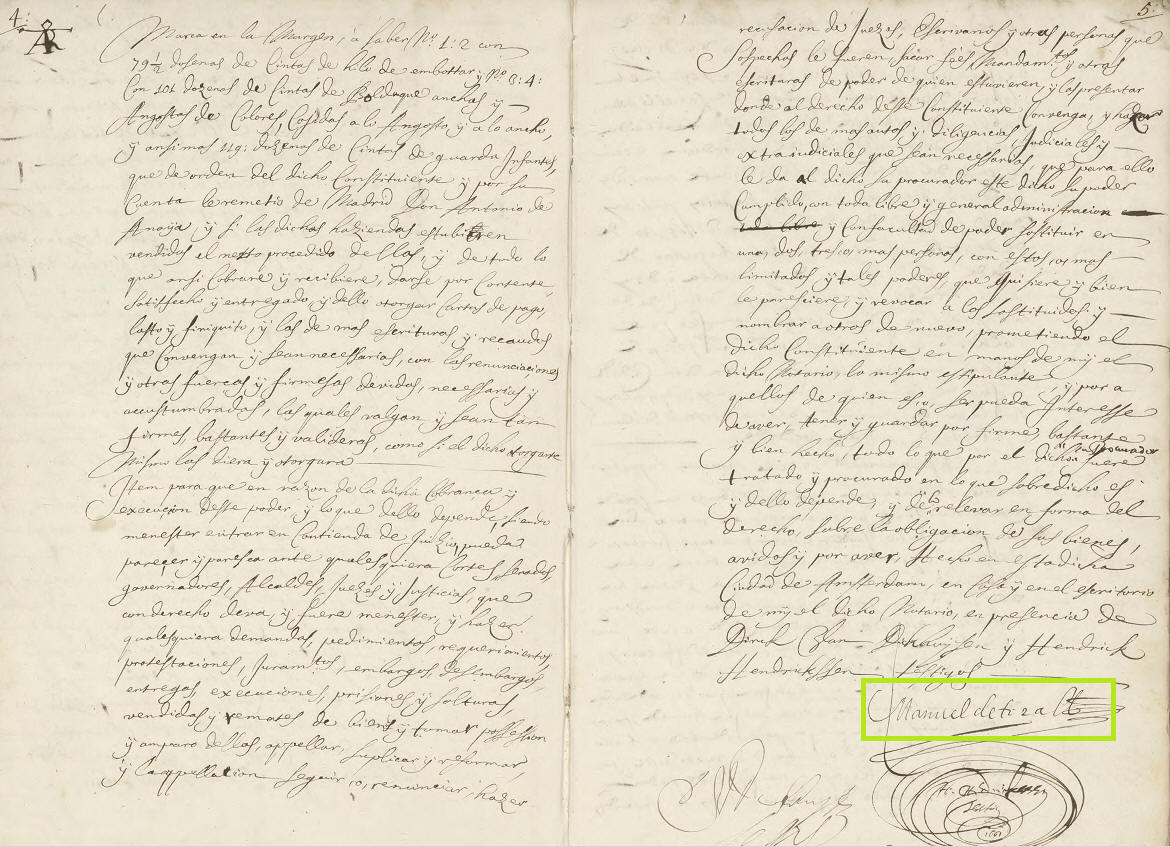 4:
Marca en la Margen, a saber Nº 1: 2 con
79½ dosenas de Cintas de hilo de embottar, y Nº 3: 4:
Con 101 dozenas de Cintas de Bolduque anchas y
Angostas de Colores, Cosidas a lo Angosto, y a lo ancho,
y ansi mas 119: dozenas de Cintas de guarda Infantes,
que de orden del dicho Constituiente y por su
Cuenta le remetio de Madrid Don Antonio de
Anaya, y si las dichas haziendas estubieren
vendidas el netto procedido dellas, y de todo lo
que ansi Cobrare y recibiere, darse por Contente,
satisfecho y entregado, y dello otorgar Cartas de pago,
lasto y finiquito, y las de mas escrituras y recaudos
que Convengan y sean necessarias, con las renunciaciones
y otras fuerças y firmesas devidas, necessarias y
accustumbradas, las quales valgan y sean tan
firmes, bastantes y valideras, como si el dicho otorgante
Mismo las diera y otorgara
Item para que en razon de la dicha Cobranca y
execucion desse poder, y lo que dello depende, siendo
menester entrar en Contienda de Juizio, pueda
pareçer y paresca ante qualesquiera Cortes, senados,
governadores, Alcaldes, Juezes y Justicias, que
con derecho deva, y fuere menester, y hazer
qualesquiera demandas, pedimientos, requerimientos,
protestaciones, Juramtos, embargos, desembargos,
entregas, execuciones, prisiones y solturas
vendidas y remates de bienes y tomar possession
y amparo dellas, appellar, suplicar y reformar,
y l'appellacion seguir, o, renunciar, hazer
5:
recusacion de Juezes, Escrivanos y otras personas que
Sospechas le fueren, sacar feés, Mandamtos y otras
escrituras de poder de quien estuvieren, y las presentar
donde al derecho desse Constituiente Convenga, y hazer
todos los de mas autos y diligencias, Judiciales y
extrajudiciales que sean necessarias, que para ello
le da al dicho su procurador este dicho su poder
Cumplido, con toda libre y general administracion
toda libre y Con facultad de poder sostituir en
uno, dos, tres o, mas personas, con estos, o, mas
limitados y tales poderes, que quisiere y bien
le paresciere, y revocar a los sostituidos, y
nombrar a otros de nuevo, prometiendo el
dicho Constituiente en manos de my el
dicho Notario, lo mismo estipulante, y por a
quellos de quien es, o, ser pueda Interesse
de aver, tener y guardar por firme bastante
y bien hecho, todo lo que por el dicho su procurador fuere
tratado y procurado en lo que sobredicho es
y dello depende, y de relevar en forma del
derecho, sobre la obligacion de sus bienes,
avidos y por aver, Hecho en esta dicha
Ciudad de Amsterdam, en Casa y en el escritorio
de my el dicho Notario, en presencia de
Dirck Jan Dirckvijsen y Hendrick
Hendrickssen testigos
Manuel de